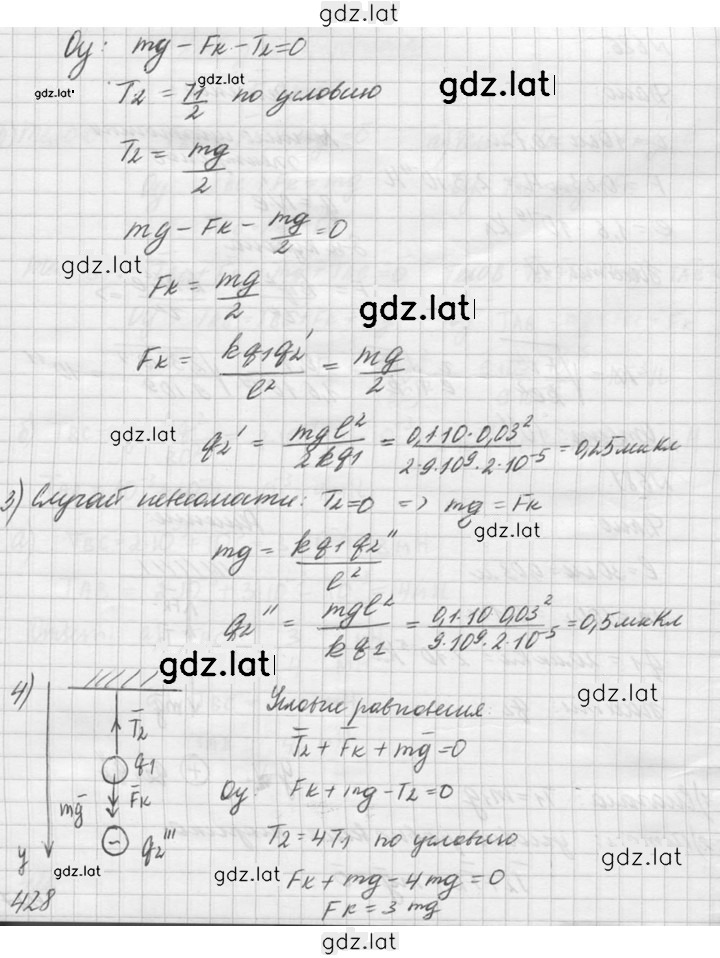 gdz.lat
Oy: mg - Fк - T₂ = 0
gdz.lat
gdz.lat
T₂ = T₁/2 по условию
gdz.lat
T₂ = mg/2
mg - Fк - mg/2 = 0
gdz.lat
Fк = mg/2
gdz.lat
Fк = kq₁q₂'/l² = mg/2
gdz.lat
q₂' = mgl²/2kq₁ = 0,1·10·0,03²/2·9·10⁹·2·10⁻⁵ = 0,25мкКл
3) Случай невесомости: T₂=0 => mg = Fк
gdz.lat
mg = kq₁q₂''/l²
q₂'' = mgl²/kq₁ = 0,1·10·0,03²/9·10⁹·2·10⁻⁵ = 0,5мкКл
gdz.lat
gdz.lat
4)
Условие равновесия:
T̄₂ + F̄к + mḡ = 0
T̄₂
q₁
F̄к
mḡ
q₂'''
y
Oy: Fк + mg - T₂ = 0
T₂ = 4T₁ по условию
gdz.lat
gdz.lat
gdz.lat
Fк + mg - 4mg = 0
Fк = 3mg
428
gdz.lat